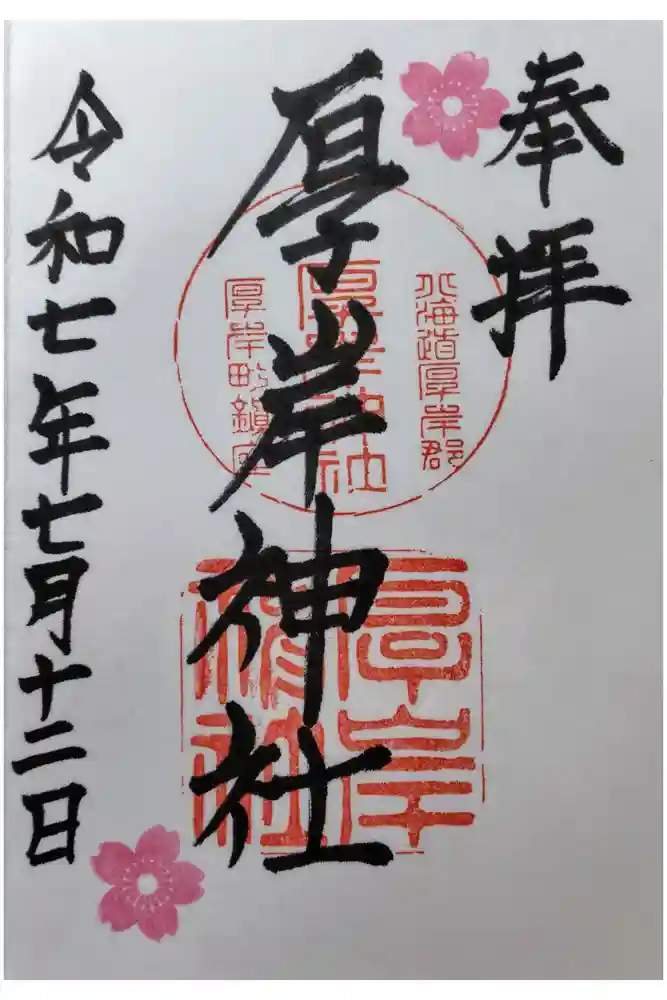 奉拝
北海道厚岸郡
厚岸神社
厚岸町鎮座
厚岸神社
厚岸
神社
令和七年七月十二日